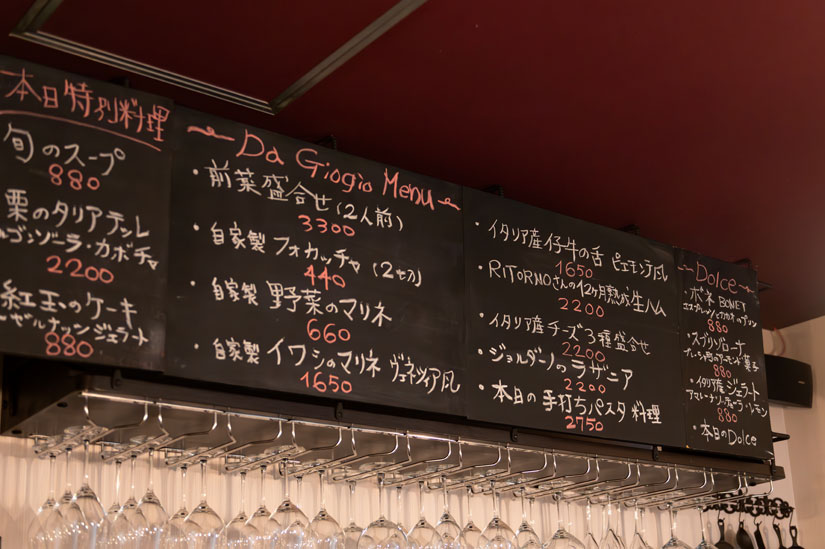 本日特別料理
旬のスープ
880
栗のタリアテッレ
ルゴンゾーラ・カボチャ
2200
紅玉のケーキ
ヘーゼルナッツジェラート
880
Da Giogio Menu
・前菜盛合せ(2人前)
3300
・自家製 フォカッチャ(2切)
440
・自家製 野菜のマリネ
660
・自家製 イワシのマリネ ヴェネツィア風
1650
・イタリア産仔牛の舌 ピエモンテ風
1650
・RITORNOさんの12ヶ月熟成生ハム
2200
・イタリア産チーズ3種盛合せ
2200
・ジョルダーノのラザニア
2200
・本日の手打ちパスタ料理
2750
Dolce
・ボネ BONET
880
880
・イタリア産ジェラート
880
・本日のDolce